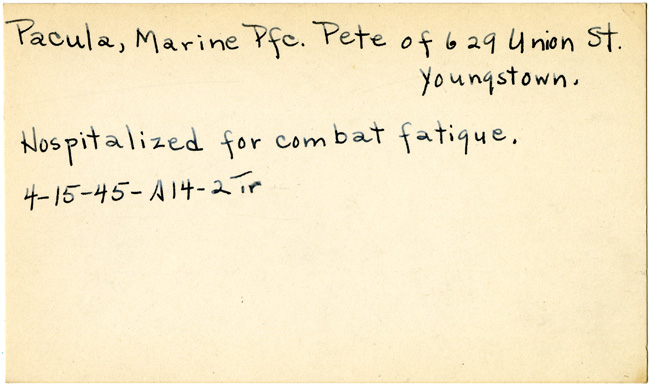 Pacula, Marine Pfc. Pete of 629 Union St.
Youngstown.
Hospitalized for combat fatigue.
4-15-45-A14-2 Tr